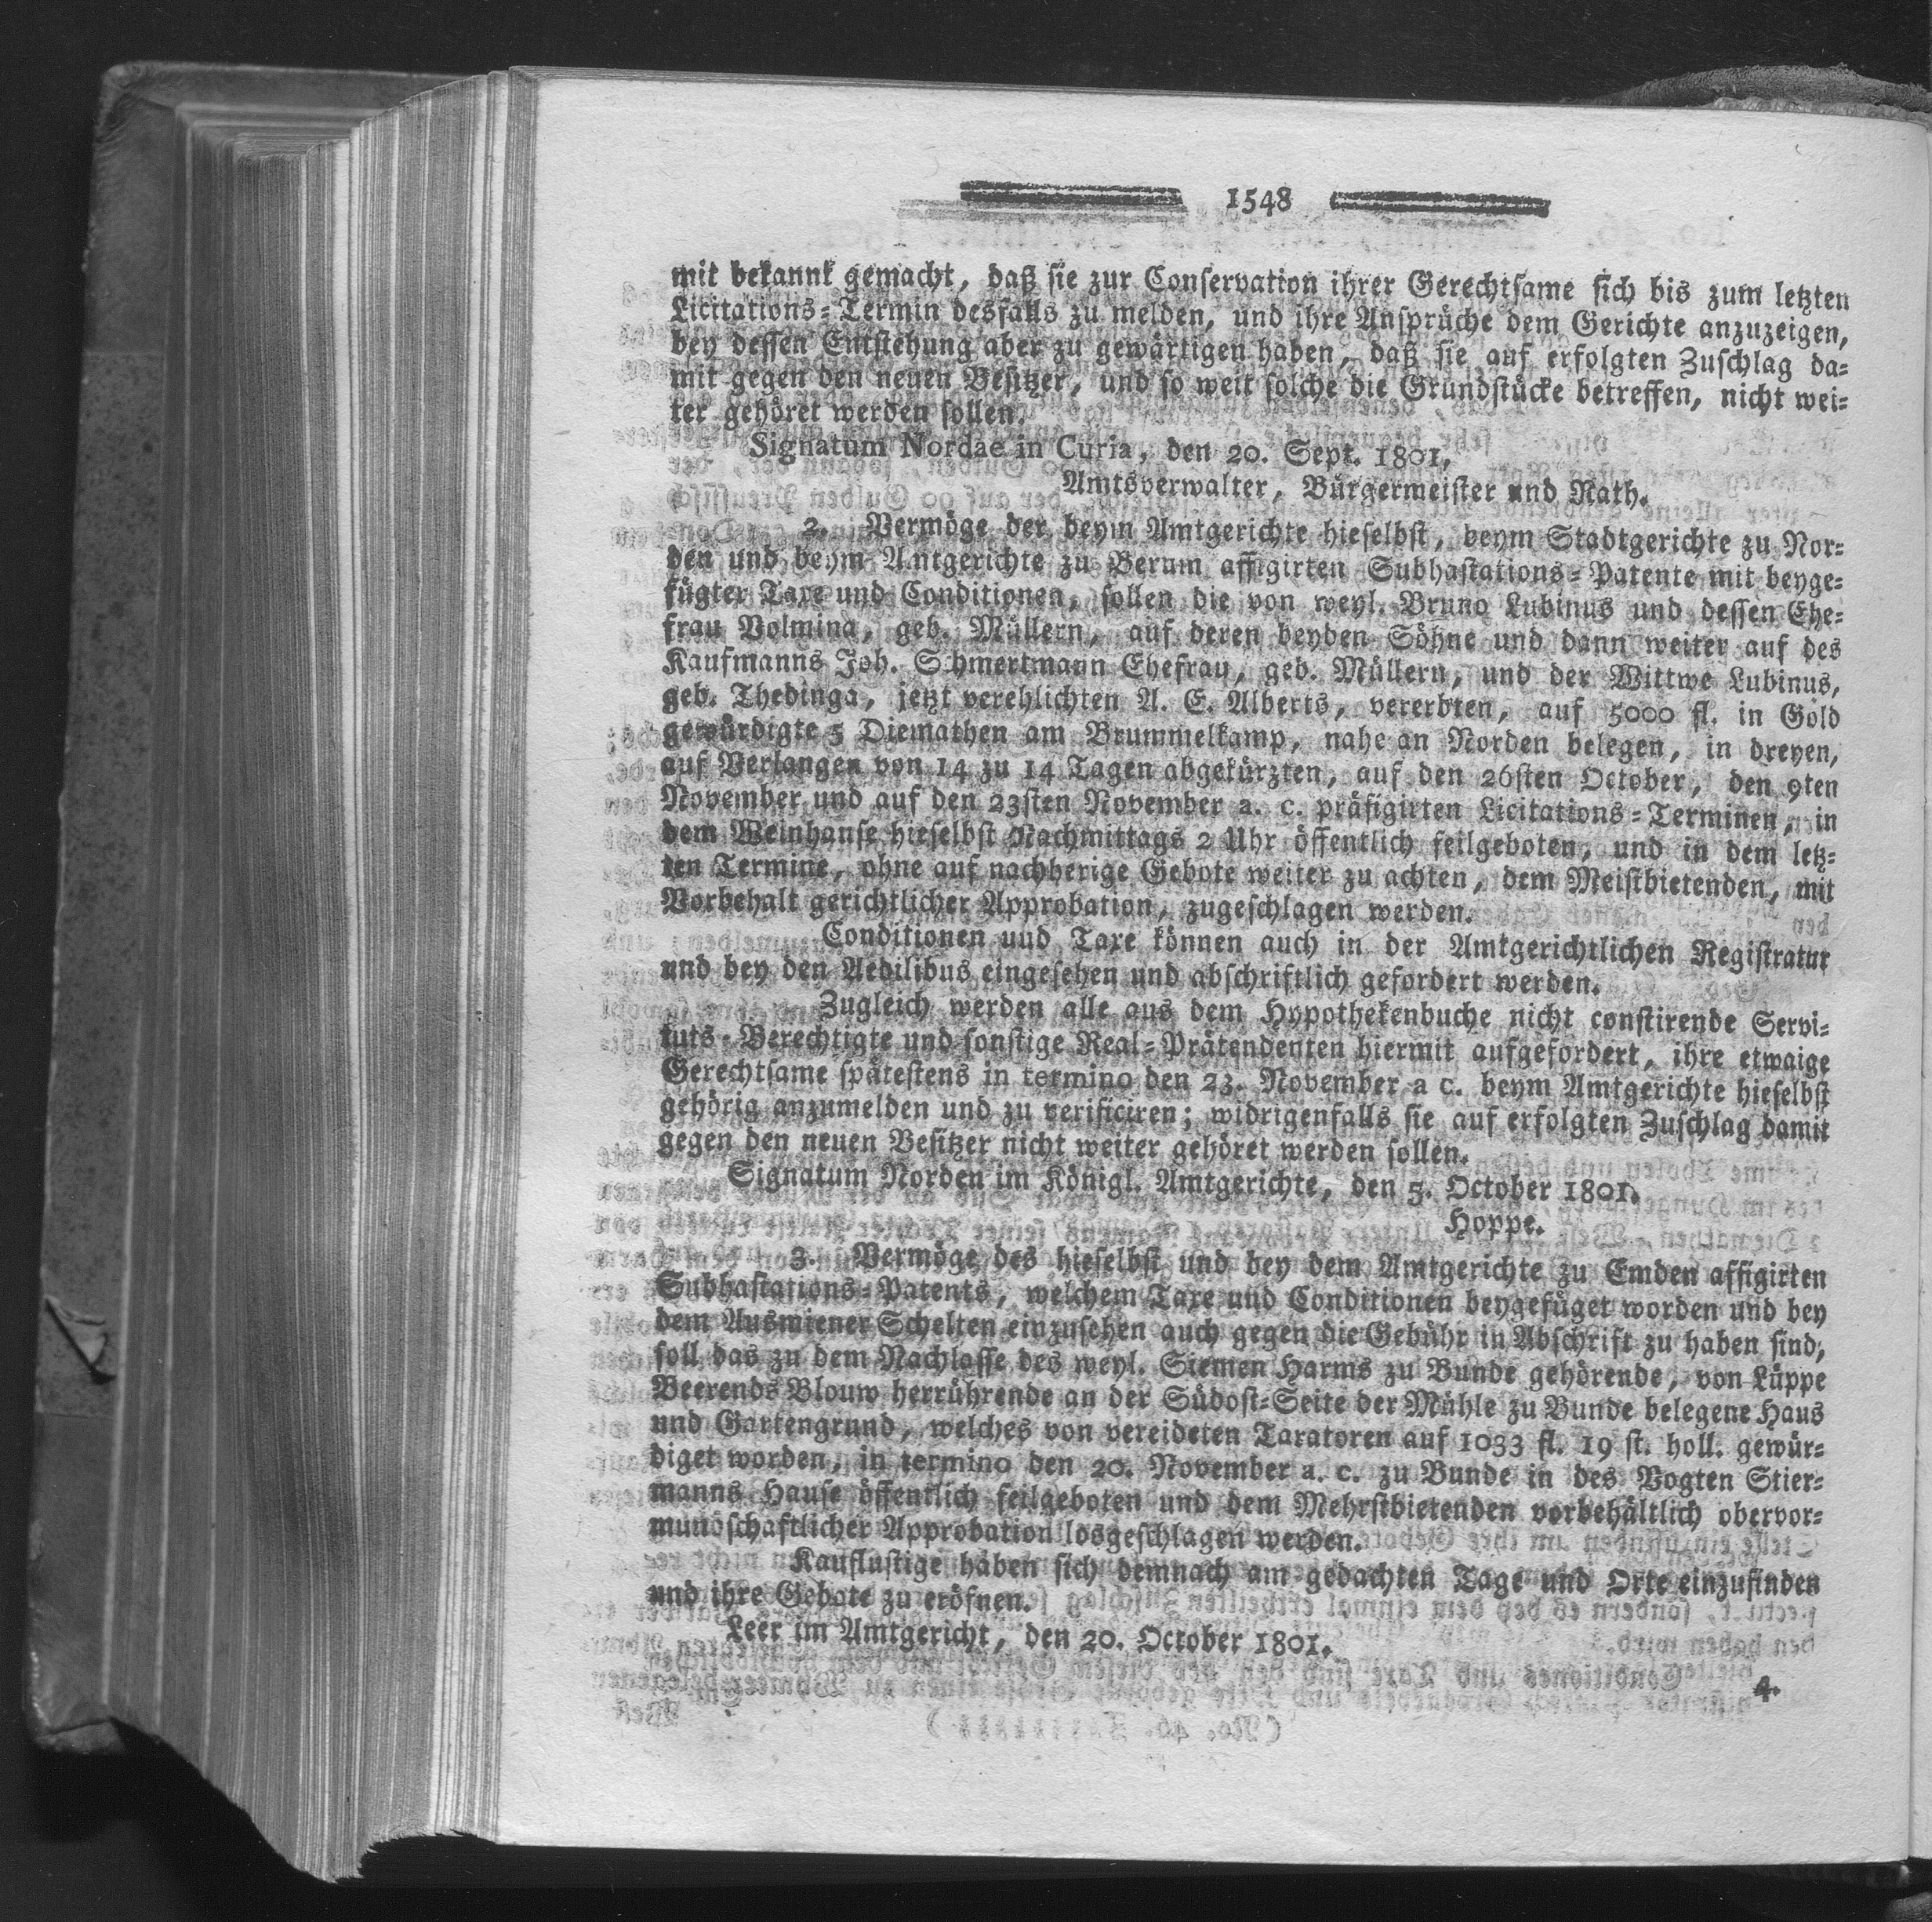 1548
mit bekannt gemacht, daß sie zur Conservation ihrer Gerechtsame sich bis zum letzten
Licitations-Termin desfalls zu melden, und ihre Ansprüche dem Gerichte anzuzeigen,
bey dessen Entstehung aber zu gewärtigen haben, daß sie auf erfolgten Zuschlag da-
mit gegen den neuen Besitzer, und so weit solche die Grundstücke betreffen, nicht wei-
ter gehöret werden sollen.
Signatum Nordae in Curia, den 20. Sept. 1801.
Amtsverwalter, Bürgermeister und Rath.
2. Vermöge der beym Amtgerichte hieselbst, beym Stadtgerichte zu Nor-
den und beym Amtgerichte zu Berum affigirten Subhastations-Patente mit beyge-
fügter Taxe und Conditionen, sollen die von weyl. Bruno Lubinus und dessen Ehe-
frau Volmina, geb. Müllern, auf deren beyden Söhne und dann weiter auf des
Kaufmanns Joh. Schmertmann Ehefrau, geb. Müllern, und der Wittwe Lubinus,
geb. Thedinga, jetzt verehlichten A. E. Alberts, vererbten, auf 5000 fl. in Gold
gewürdigte 5 Diemathen am Brummelkamp, nahe an Norden belegen, in dreyen,
auf Verlangen von 14 zu 14 Tagen abgekürzten, auf den 26sten October, den 9ten
November und auf den 23sten November a. c. präfigirten Licitations-Terminen, in
dem Weinhause hieselbst Nachmittags 2 Uhr öffentlich feilgeboten, und in dem letz-
ten Termine, ohne auf nachherige Gebote weiter zu achten, dem Meistbietenden, mit
Vorbehalt gerichtlicher Approbation, zugeschlagen werden.
Conditionen uud Taxe können auch in der Amtgerichtlichen Registratur
und bey den Aedilibus eingesehen und abschriftlich gefordert werden.
Zugleich werden alle aus dem Hypothekenbuche nicht constirende Servi-
tuts-Berechtigte und sonstige Real-Prätendenten hiermit aufgefordert, ihre etwaige
Gerechtsame spätestens in termino den 23. November a c. beym Amtgerichte hieselbst
gehörig anzumelden und zu verificiren; widrigenfalls sie auf erfolgten Zuschlag damit
gegen den neuen Besitzer nicht weiter gehöret werden sollen.
Signatum Norden im Königl. Amtgerichte, den 5. October 1801.
Hoppe.
3. Vermöge des hieselbst und bey dem Amtgerichte zu Emden affigirten
Subhastations-Patents, welchem Taxe und Conditionen beygefüget worden und bey
dem Ausmiener Schelten einzusehen auch gegen die Gebühr in Abschrift zu haben sind,
soll das zu dem Nachlasse des weyl. Siemen Harms zu Bunde gehörende, von Läppe
Beerends Blouw herrührende an der Südost-Seite der Mühle zu Bunde belegene Haus
und Gartengrund, welches von vereideten Taxatoren auf 1033 fl. 19 st. holl. gewür-
diget worden, in termino den 20. November a. c. zu Bunde in des Vogten Stier-
manns Hause öffentlich feilgeboten und dem Mehrstbietenden vorbehältlich obervor-
mundschaftlicher Approbation losgeschlagen werden.
Kauflustige haben sich demnach am gedachten Tage und Orte einzufinden
und ihre Gebote zu eröfnen.
Leer im Amtgericht, den 20. October 1801.
4.